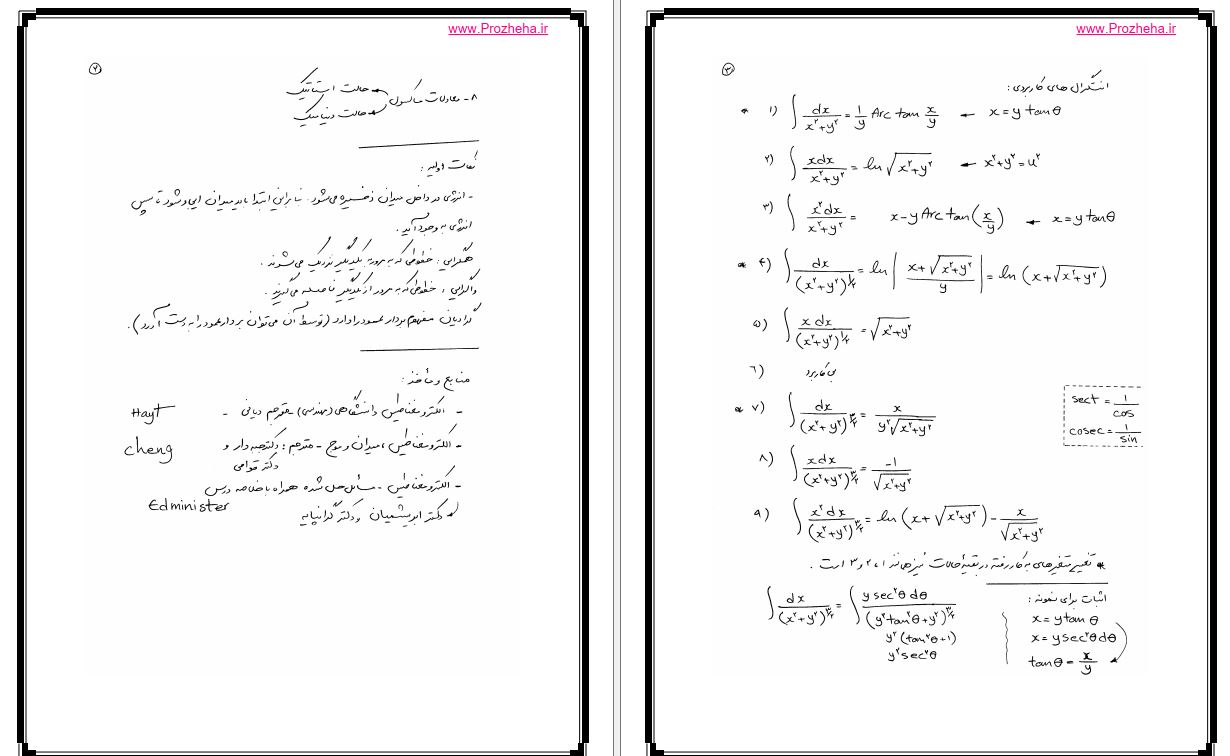 www.Prozheha.ir
۲
۸- معادلات ماکسول حالت استاتیک
حالت دینامیک
نکات اولیه :
- انرژی در داخل میدان ذخیره می‌شود. بنابراین ابتدا باید میدان ایجاد شود تا سپس
انرژی به وجود آید.
همگرایی : خطوطی که به مرور به یکدیگر نزدیک می‌شوند.
واگرایی : خطوطی که به مرور از یکدیگر فاصله می‌گیرند.
گرادیان مفهوم بردار عمود را دارد (توسط آن می‌توان بردار عمود را به دست آورد).
منابع و مأخذ :
- الکترومغناطیس دانشگاهی (مهندسی) مترجم دیانی - Hayt
- الکترومغناطیس، میدان و موج - مترجم : دکتر جبه‌دار و cheng
دکتر قوامی
- الکترومغناطیس - مسائل حل شده همراه با خلاصه درس
دکتر ابریشمیان و دکتر گرانپایه Edminister
www.Prozheha.ir
۳
انتگرال های کاربردی :
* ۱) ∫ dx/(x²+y²) = 1/y Arc tan x/y ← x = y tanθ
۲) ∫ xdx/(x²+y²) = ln √(x²+y²) ← x²+y² = u²
۳) ∫ x²dx/(x²+y²) = x - y Arc tan(x/y) ← x = y tanθ
* ۴) ∫ dx/(x²+y²)^½ = ln |(x+√(x²+y²))/y| = ln (x+√(x²+y²))
۵) ∫ x dx/(x²+y²)^½ = √(x²+y²)
۶) بی کاربرد
sect = 1/cos
cosec = 1/sin
* ۷) ∫ dx/(x²+y²)^(۳/۲) = x/(y²√(x²+y²))
۸) ∫ xdx/(x²+y²)^(۳/۲) = -1/√(x²+y²)
۹) ∫ x²dx/(x²+y²)^(۳/۲) = ln (x+√(x²+y²)) - x/√(x²+y²)
* تغییر متغیرهای به کار رفته در بقیهٔ حالات نیز همانند ۱، ۲ و ۳ است.
اثبات برای نمونه :
∫ dx/(x²+y²)^(۳/۲) = ∫ y sec²θ dθ/(y²tan²θ+y²)^(۳/۲)
y²(tan²θ+1)
y²sec²θ
x = y tan θ
x = y sec²θ dθ
tanθ = x/y